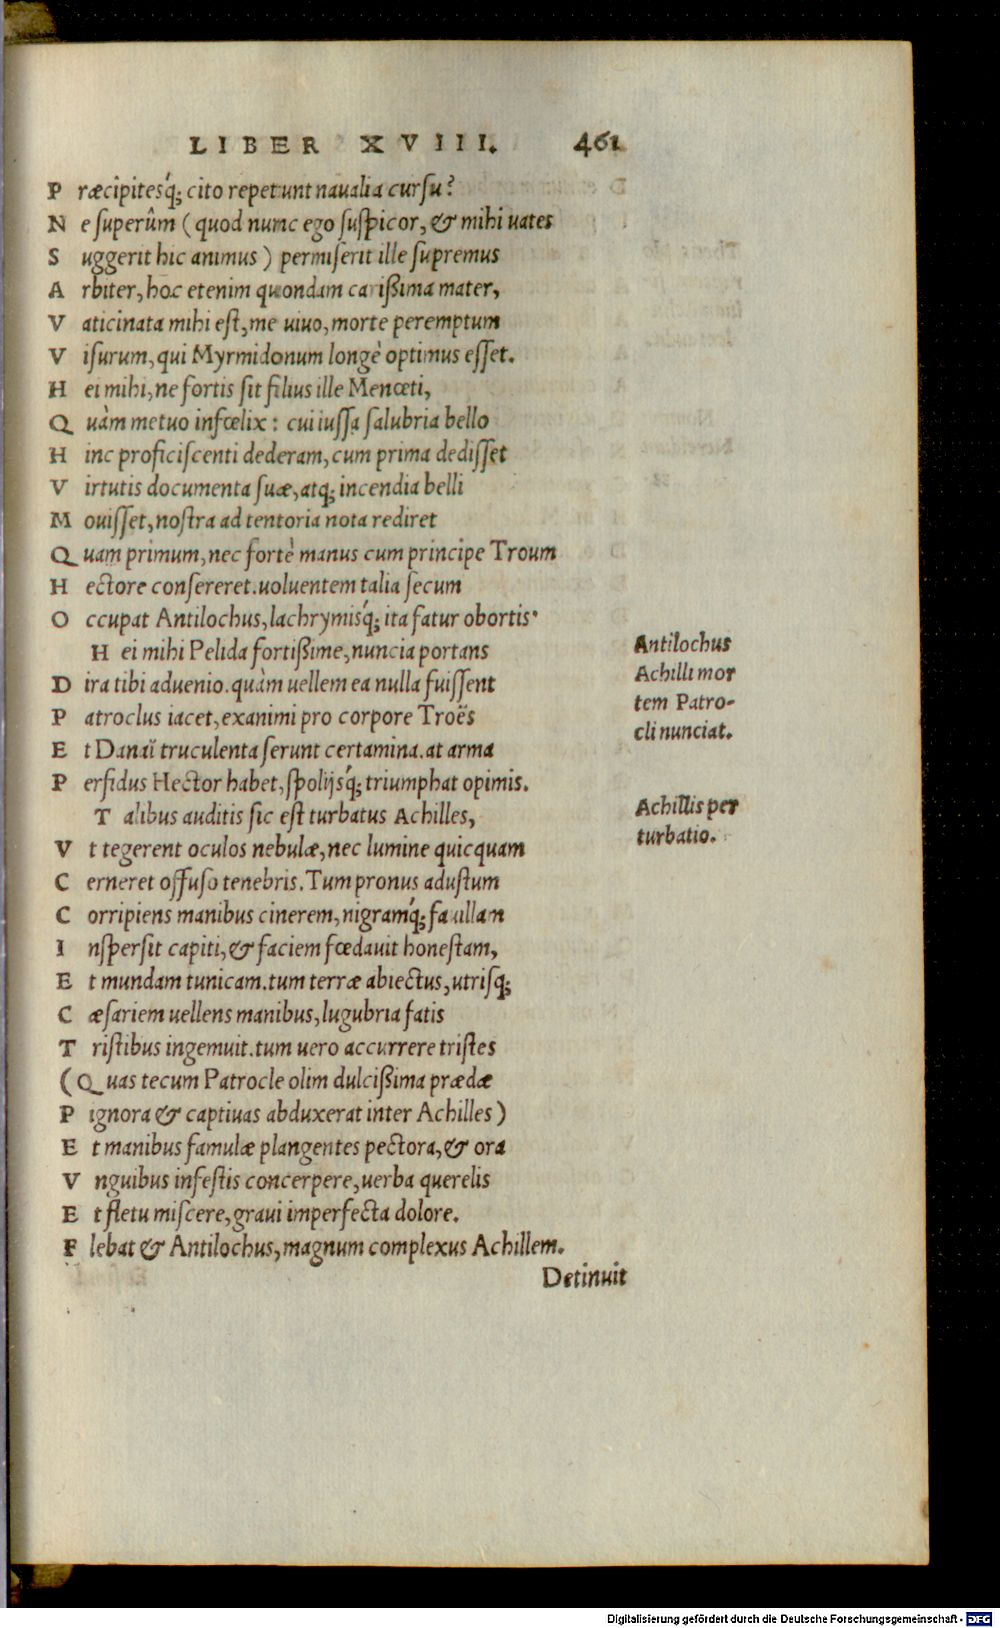 LIBER XVIII. 461
Præcîpitesq́; cito repetunt naualia cursu?
Ne superûm (quod nunc ego suspicor, & mihi uates
Suggerit hic animus) permiserit ille supremus
Arbiter, hoc etenim quondam carißima mater,
Vaticinata mihi est, me uiuo, morte peremptum
Visurum, qui Myrmidonum longè optimus esset.
Hei mihi, ne fortis sit filius ille Menœti,
Quàm metuo infœlix: cui iussa salubria bello
Hinc proficiscenti dederam, cum prima dedisset
Virtutis documenta suæ, atq; incendia belli
Mouisset, nostra ad tentoria nota rediret
Quam primum, nec fortè manus cum principe Troum
Hectore consereret. uoluentem talia secum
Occupat Antilochus, lachrymisq́; ita fatur obortis.
Hei mihi Pelida fortißime, nuncia portans
Dira tibi aduenio. quàm uellem ea nulla fuissent
Patroclus iacet, exanimi pro corpore Troës
Et Danaï truculenta serunt certamina. at arma
Perfidus Hector habet, spolijsq́; triumphat opimis.
Talibus auditis sic est turbatus Achilles,
Vt tegerent oculos nebulæ, nec lumine quicquam
Cerneret offuso tenebris. Tum pronus adustum
Corripiens manibus cinerem, nigramq́; fauillam
Inspersit capiti, & faciem fœdauit honestam,
Et mundam tunicam. tum terræ abiectus, utrisq;
Cæsariem uellens manibus, lugubria fatis
Tristibus ingemuit. tum uero accurrere tristes
(Quas tecum Patrocle olim dulcißima prædæ
Pignora & captiuas abduxerat inter Achilles)
Et manibus famulæ plangentes pectora, & ora
Vnguibus infestis concerpere, uerba querelis
Et fletu miscere, graui imperfecta dolore.
Flebat & Antilochus, magnum complexus Achillem.
Detinuit
Antilochus
Achilli mor
tem Patro-
cli nunciat.
Achillis per
turbatio.
Digitalisierung gefördert durch die Deutsche Forschungsgemeinschaft - DFG